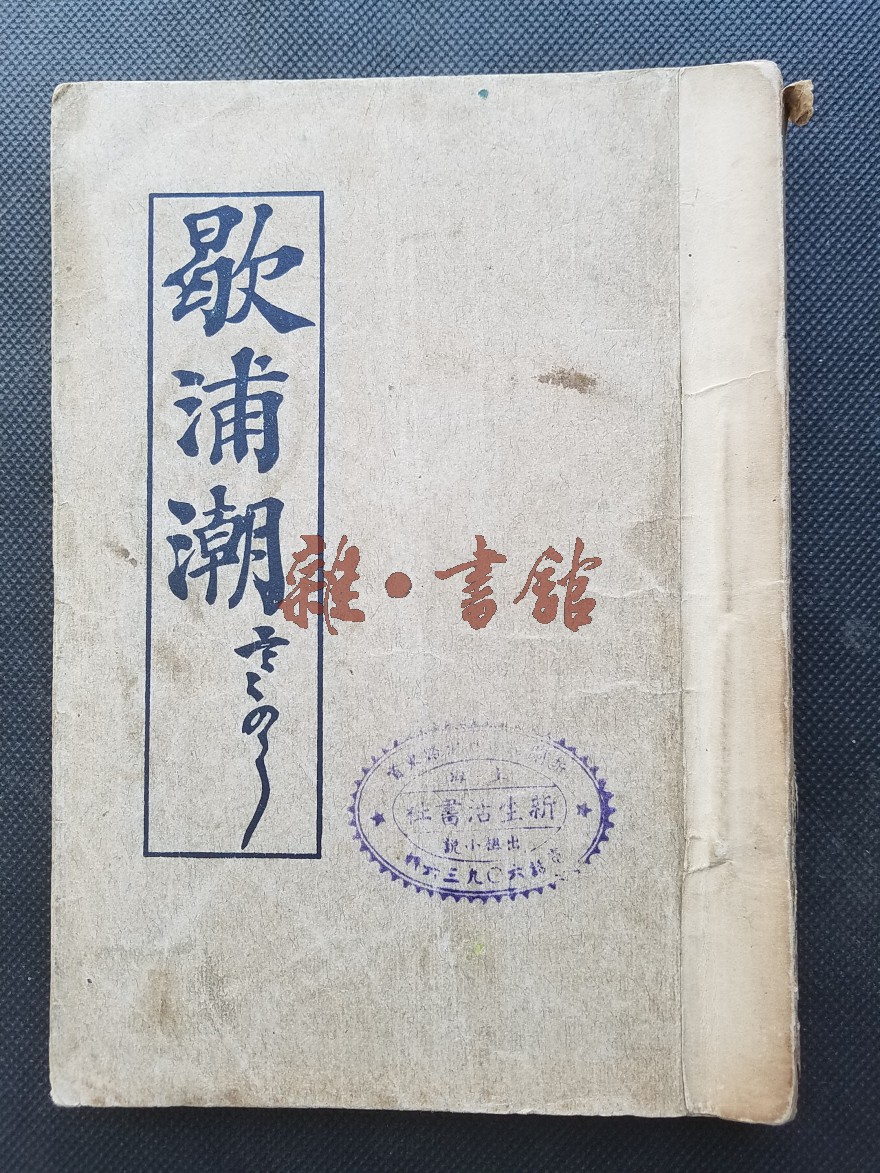 歇浦潮
雜·書館
上海
新生活書社
出租小說
電話六〇九三六